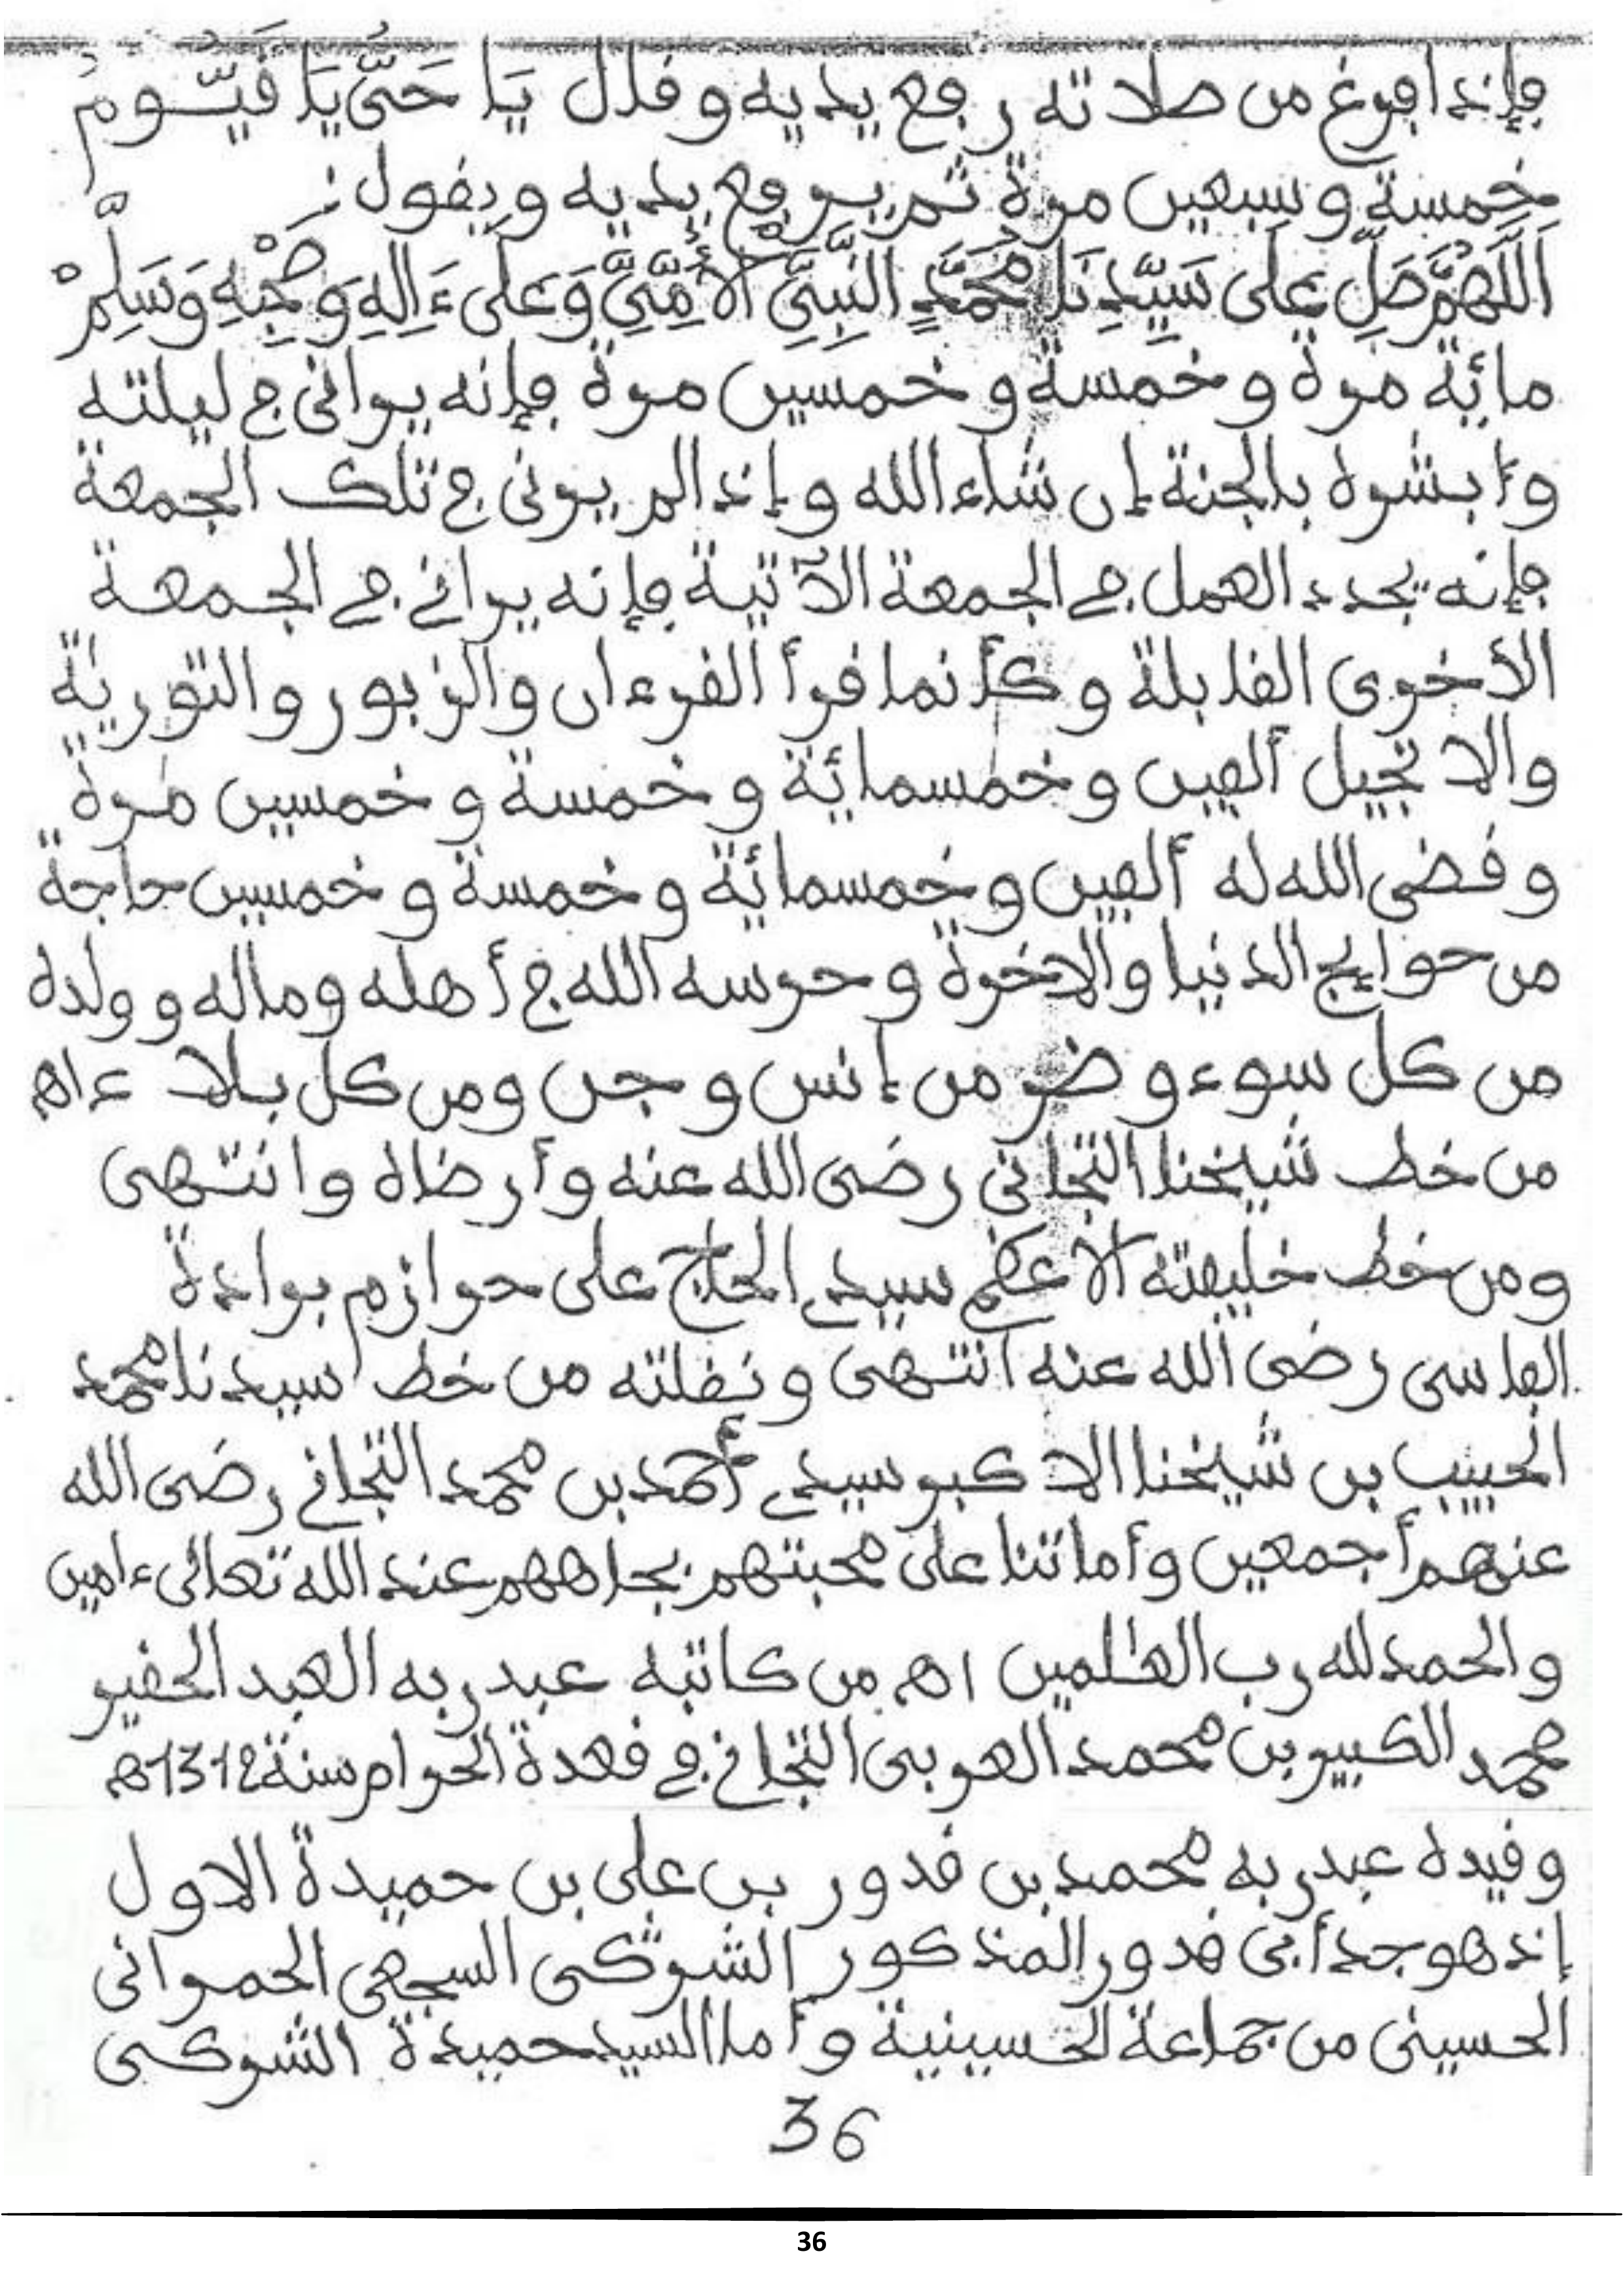 فإذا فرغ من صلاته رفع يديه وقال يَا حَىُّ يَا قَيُّومُ
خمسة وسبعين مرة ثم يرفع يديه ويقول :
اَللَّهُمَّ صَلِّ عَلَى سَيِّدِنَا مُحَمَّدٍ النَّبِىِّ الْأُمِّىِّ وَعَلَى ءَالِهِ وَصَحْبِهِ وَسَلِّمْ
مائة مرة وخمسة وخمسين مرة فإنه يرانى في ليلته
وأبشره بالجنة إن شاء الله وإذا لم يرنى في تلك الجمعة
فإنه يجدد العمل في الجمعة الآتية فإنه يراني في الجمعة
الأخرى القابلة وكأنما قرأ القرءان والزبور والتورىٰة
والانجيل ألفين وخمسمائة وخمسة وخمسين مرة
وقضى الله له ألفين وخمسمائة وخمسة وخمسين حاجة
من حوايج الدنيا والاخرة وحرسه الله في أهله وماله وولده
من كل سوء وضر من إنس وجن ومن كل بلاء اهـ
من خط شيخنا التجانى رضى الله عنه وأرضاه وانتهى
ومن خط خليفته الأعظم سيدي الحاج على حرازم برادة
الفاسى رضى الله عنه انتهى ونقلته من خط سيدنا محمد
الحبيب بن شيخنا الاكبر سيدي أحمد بن محمد التجاني رضى الله
عنهم أجمعين وأماتنا على محبتهم بجاههم عند الله تعالى ءامين
والحمد لله رب العٰلمين اهـ من كاتبه عبد ربه العبد الحقير
محمد الكبير بن محمد العربى التجاني في قعدة الحرام سنة 1312هـ
وقيده عبد ربه محمد بن قدور بن على بن حميدة الاول
إذ هو جد أبى قدور المذكور الشركى السجعى الحمرانى
الحسينى من جماعة الحسينية وأما السيد حميدة الشركى
36
36